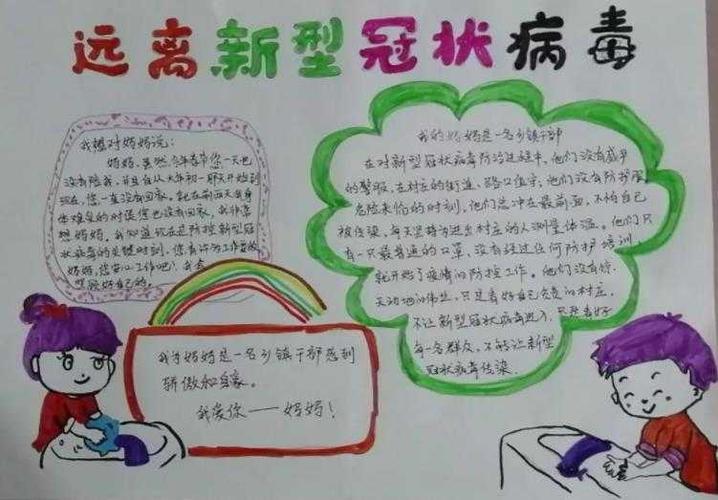 远离新型冠状病毒
我想对妈妈说：
妈妈，虽然今年春节您一天也
没有陪我，并且自从大年初一那天开始到
现在，您一直没有回家。就在前两天我身
体难受的时候您也没有回家，我非常
想妈妈。我知道现在是防控新型冠
状病毒的关键时刻，您有许多工作要做
妈妈，您安心工作吧！我会
照顾好自己的。
我为妈妈是一名乡镇干部感到
骄傲和自豪。
我爱你——妈妈！
我的妈妈是一名乡镇干部
在对新型冠状病毒防治过程中，他们没有威严
的警服，在村庄的街道、路口值守；他们没有防护服
危险来临的时刻，他们总冲在最前面，不怕自己
被传染，每天坚持为进出村庄的人测量体温。他们只
有一只最普通的口罩、没有经过任何防护培训
就开始了疫情的防控工作。他们没有惊
天动地的伟业，只是看好自己负责的村庄，
不让新型冠状病毒进入，只是看好
每一名群众，不能让新型
冠状病毒传染